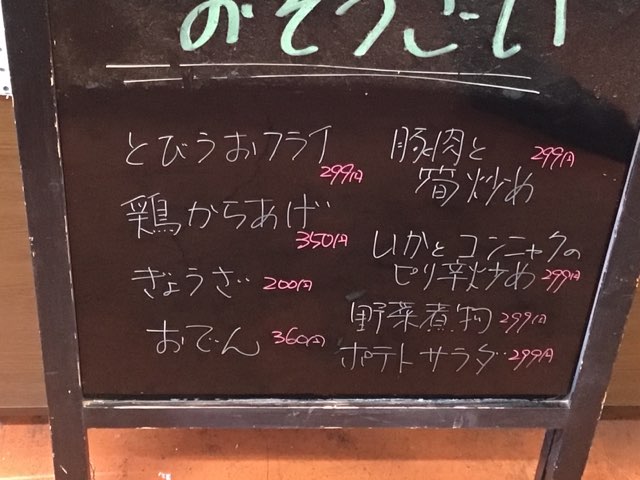 おそうざい
とびうおフライ
299円
鶏からあげ
350円
ぎょうざ 200円
おでん 360円
豚肉と 299円
筍炒め
いかとコンニャクの
ピリ辛炒め 299円
野菜煮物 299円
ポテトサラダ 299円